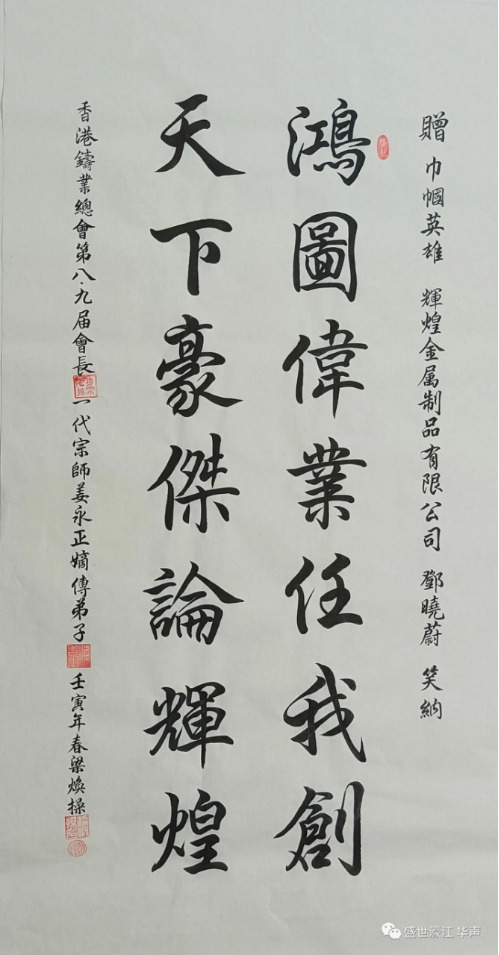 贈 巾幗英雄 輝煌金属制品有限公司 鄧曉蔚 笑納
鴻圖偉業任我創
天下豪傑論輝煌
香港鑄業總會第八·九届會長
一代宗師姜永正嫡傳弟子
壬寅年春梁焕操
盛世濠江 华声